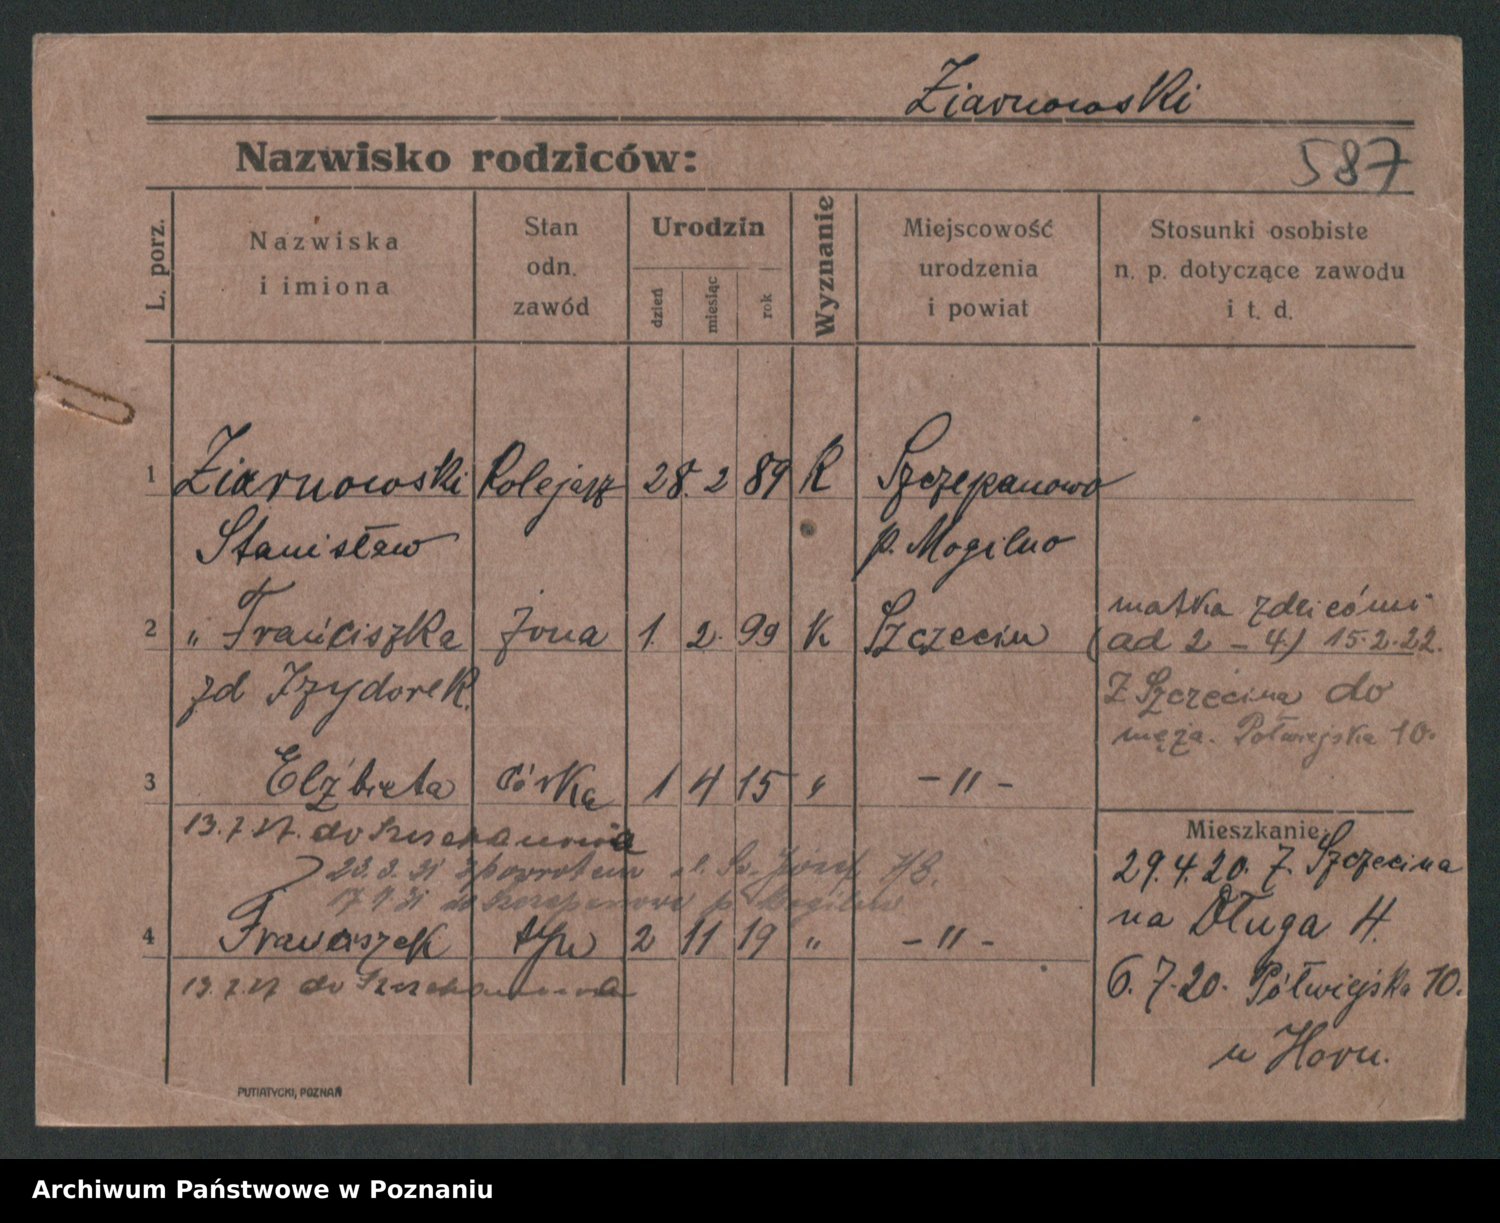 Ziarnowski
Nazwisko rodziców:
587
L. porz.
Nazwiska
i imiona
Stan
odn.
zawód
Urodzin
dzień
miesiąc
rok
Wyznanie
Miejscowość
urodzenia
i powiat
Stosunki osobiste
n. p. dotyczące zawodu
i t. d.
1 Ziarnowski Kolejarz 28. 2 89 R Szczepanowo
Stanisław p. Mogilno
2 „ Franciszka żona 1. 2. 99 K Szczecin
zd Izydorek
matka zdziećmi
(ad 2 - 4) 15.2.22.
Z Szczecina do
męża. Półwiejska 10.
3 Elżbieta córka 1 4 15 „ - " -
13.7.27. do Szczepanowa
23.3.31 zpowrotem Św. Józef 7/8.
17.9.31 do Szczepanowo p Mogilno
4 Franciszek syn 2 11 19 „ - " -
13.7.27 do Szczepanowa
Mieszkanie:
29.4.20. z Szczecina
na Długa 4.
6.7.20. Półwiejska 10.
u Horn.
PUTIATYCKI, POZNAŃ
Archiwum Państwowe w Poznaniu